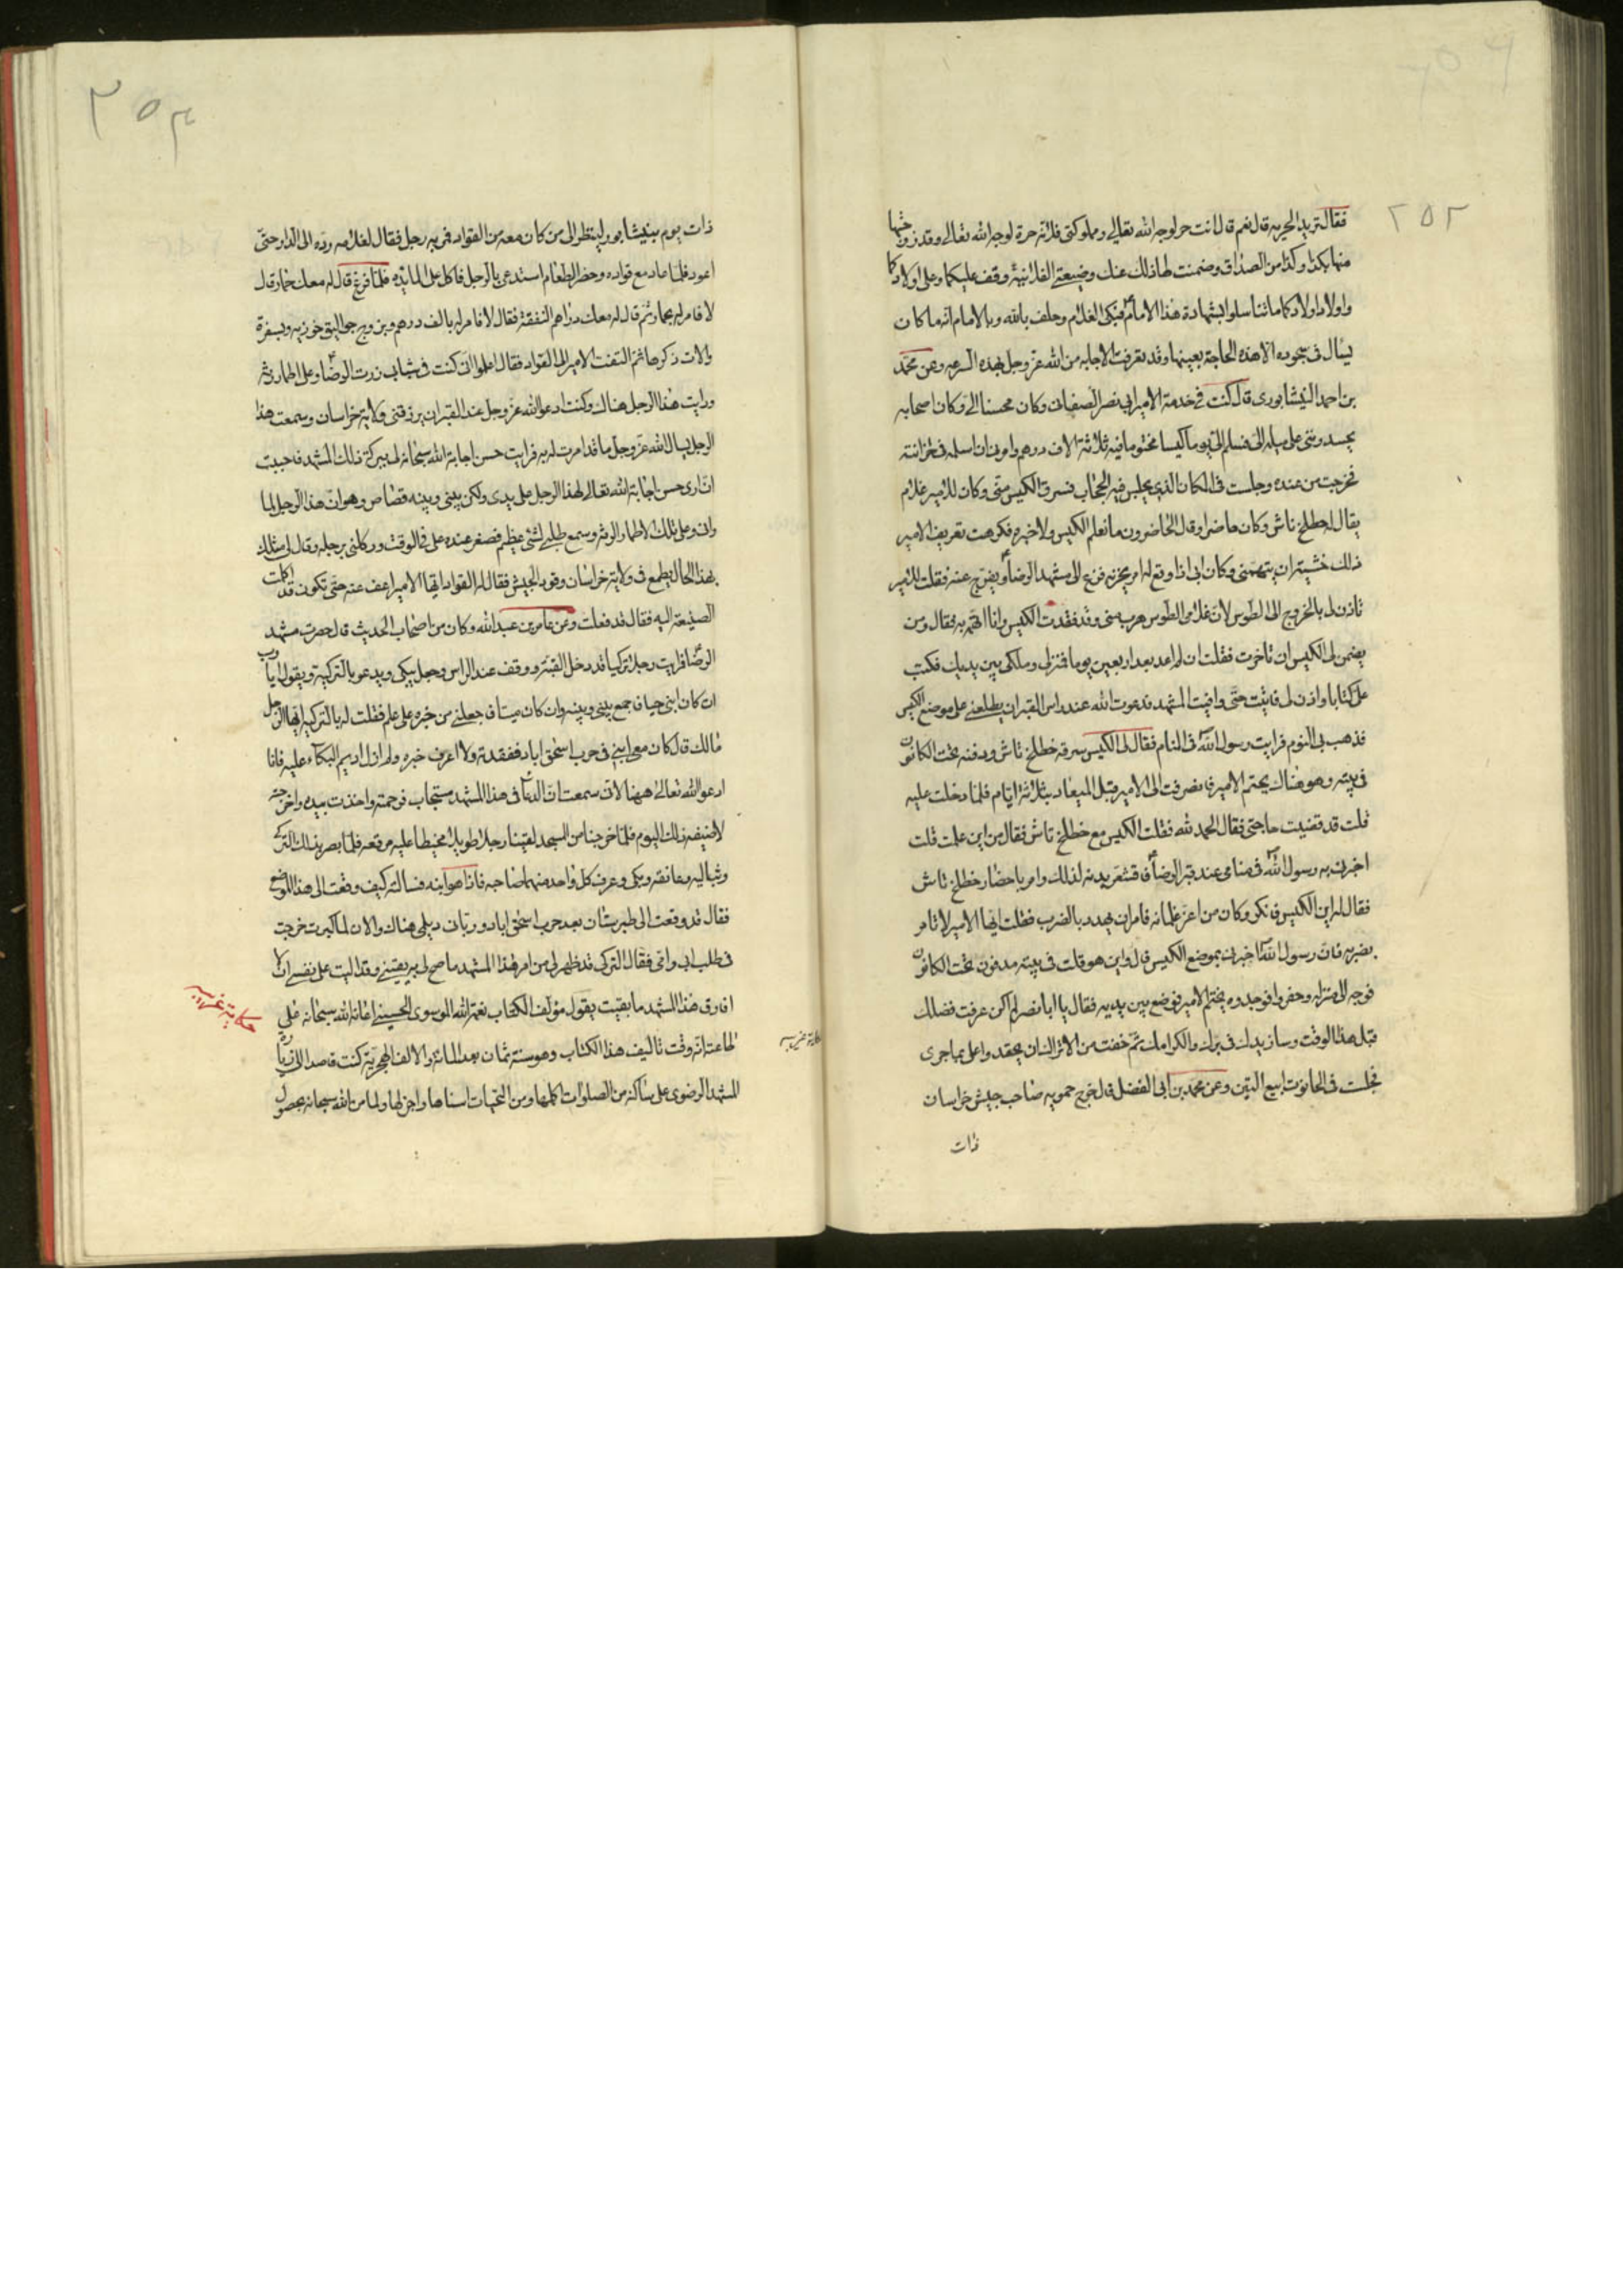 ٢٥٢
فقال تريد الحرية قال نعم قال انت حر لوجه الله تعالى ومملوكتى فلانة حرة لوجه الله تعالى وقد زوجتها
منها بكذا وكذا من الصداق وضمنت لها ذلك عنك وضيعتى الفلانية وقف عليكما وعلى اولادكما
واولاد اولادكما ما تناسلوا بشهادة هذا الامام فبكى الغلام وحلف بالله وبالامام انه ما كان
يسأل فى سجوده الا هذه الحاجة بعينها وقد تعرفت الاجابه من الله عز وجل بهذه السرعه وعن محمد
بن احمد النيشابورى قال كنت فى خدمة الامير ابى نصر الصغانى وكان محسنا الى وكان اصحابه
يحسدونى على ميله الى فسلم الى يوما كيسا مختوما فيه ثلاثة الاف درهم وامرنى ان اسلمه فى خزانته
فخرجت من عنده وجلست فى المكان الذى يجلس فيه الحجاب فسرق الكيس منى وكان للامير غلام
يقال له خطلخ تاش وكان حاضرا وقال الحاضرون ما نعلم الكيس ولا خبره فكرهت تعريف الامير
ذلك خشية ان يتهمنى وكان ابى اذا وقع له امر يحزنه فزع الى مشهد الرضا ويفرج عنه فقلت للامير
تاذن لى بالخروج الى الطوس لان غلامى الطوسى هرب منى وقد فقدت الكيس وانا اتهمه به فقال ومن
يضمن لى الكيس ان تاخرت فقلت ان لم اعد بعد اربعين يوما فمنزلى وملكى بين يديك فكتب
على كتابا واذن لى فاتيت حتى وافيت المشهد فدعوت الله عند راس القبر ان يطلعنى على موضع الكيس
فذهب بى النوم فرايت رسول الله فى المنام فقال لى الكيس سرقه خطلخ تاش ودفنه تحت الكانون
فى بيته وهو هناك بختم الامير فانصرفت الى الامير قبل الميعاد بثلاثة ايام فلما دخلت عليه
قلت قد قضيت حاجتى فقال الحمد لله فقلت الكيس مع خطلخ تاش فقال من اين علمت قلت
اخبرنى به رسول الله فى منامى عند قبر الرضا فاقشعر بدنه لذلك وامر باحضار خطلخ تاش
فقال له اين الكيس فانكر وكان من اعز غلمانه فامر ان يهدد بالضرب فقلت ايها الامير لا تامر
بضربه فان رسول الله اخبرنى بموضع الكيس قال واين هو قلت فى بيته مدفون تحت الكانون
فوجه الى منزله وحفروا فوجدوه بختم الامير فوضع بين يديه فقال يا ابا نصر لم اكن عرفت فضلك
قبل هذا الوقت وسازيد لك فى برك والكرامك ثم خفت من الاتراك ان يحقد واعلى بما جرى
فجلست فى الحانوت ابيع التبن وعن محمد بن ابى الفضل قال خرج حمويه صاحب جيش خراسان
ذات
٢٥٣
ذات يوم بنيشابور لينظر الى من كان معه من القواد فمر به رجل فقال لغلامه رده الى الدار حتى
اعود فلما عاد مع قواده وحضر الطعام استدعى بالرجل فاكل على المايده فلما فرغ قال له معك حمار قال
لا فامر له بحمار ثم قال له معك دراهم النفقة فقال لا فامر له بالف درهم وبزوج جواليق خوزيه وبسفرة
والات ذكرها ثم التفت الامير الى القواد فقال اعلموا انى كنت فى شبابى زرت الرضا وعلى اطمار رثة
ورايت هذا الرجل هناك وكنت ادعو الله عز وجل عند القبر ان يرزقنى ولاية خراسان وسمعت هذا
الرجل يسال الله عز وجل ما قد امرت له به فرايت حسن اجابة الله سبحانه لى ببركة ذلك المشهد فاحببت
ان ارى حسن اجابة الله تعالى لهذا الرجل على يدى ولكن بينى وبينه قصاص وهو ان هذا الرجل لما
رانى وعلى تلك الاطمار الرثه وسمع طلبى لشئ عظيم فصغر عنده على فى الوقت وركلنى برجله وقال لى مثلك
بهذا الحال يطمع فى ولاية خراسان وقود الجيش فقال له القواد ايها الامير اعف عنه حتى تكون قد اكملت
الصنيعة اليه فقال قد فعلت وعن عامر بن عبد الله وكان من اصحاب الحديث قال حضرت مشهد
الرضا فرايت رجلا تركيا قد دخل القبة ووقف عند الراس وجعل يبكى ويدعو بالتركية ويقول يا رب
ان كان ابنى حيا فاجمع بينى وبينه وان كان ميتا فاجعلنى من خبره على علم فقلت له بالتركيه ايها الرجل
مالك قال كان معى ابنى فى حرب اسحق اباد ففقدته ولا اعرف خبره وله ام لا تديم البكاء عليه فانا
ادعو الله تعالى ههنا لانى سمعت ان الدعا فى هذا المشهد مستجاب فرحمته واخذت بيده واخرجته
لاضيفه ذلك اليوم فلما خرجنا من المسجد لقينا رجلا طويلا مخيطا عليه مرقعه فلما بصر بذلك التركى
وثب اليه وعانقه وبكى وعرف كل واحد منهما صاحبه فاذا هو ابنه فسالته كيف وقعت الى هذا الموضع
فقال قد وقعت الى طبرستان بعد حرب اسحق اباد وربانى ديلمى هناك والان لما كبرت خرجت
فى طلب ابى وامى فقال التركى قد ظهر لى من امر هذا المشهد ما صح لى به يقينى وقد اليت على نفسى ان لا
افارق هذا المشهد ما بقيت يقول مؤلف الكتاب نعمة الله الموسوى الحسينى اعانه الله سبحانه على
طاعته انه وقت تاليف هذا الكتاب وهو سنة ثمان بعد المائة والالف الهجرية كنت قاصدا الى زيارة
المشهد الرضوى على ساكنه من الصلوات اكملها ومن التحيات اسناها واجزلها ولما من الله سبحانه بحصول
حكاية غريبه
حكاية غريبه